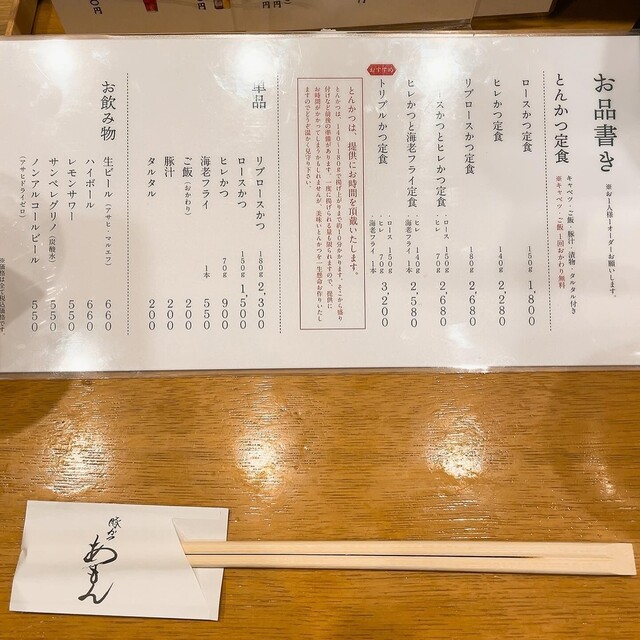 お品書き
※お1人様1オーダーお願いします。
とんかつ定食
キャベツ・ご飯・豚汁・漬物・タルタル付き
※キャベツ・ご飯1回おかわり無料
ロースかつ定食 150g 1,800
ヒレかつ定食 140g 2,280
リブロースかつ定食 180g 2,680
ースかつとヒレかつ定食 ・ロース 150g ・ヒレ 70g 2,680
ヒレかつと海老フライ定食 ・ヒレ 140g ・海老フライ 1本 2,580
おすすめ
トリプルかつ定食 ・ロース 150g ・ヒレ 70g ・海老フライ 1本 3,200
とんかつは、提供にお時間を頂戴いたします。
とんかつは、140〜180gで揚げ上がりまで約10分かかります。そこから盛り
付けなど前後の準備があります。一度に揚げられる量も限られますので、提供に
お時間がかかってしまうかもしれませんが、美味いとんかつを一生懸命お作りいたし
ますのでどうぞ温かく見守り下さい。
単品
リブロースかつ 180g 2,300
ロースかつ 150g 1,500
ヒレかつ 70g 900
海老フライ 1本 550
ご飯(おかわり) 200
豚汁 200
タルタル 200
お飲み物
生ビール(アサヒ・マルエフ) 660
ハイボール 660
レモンサワー 550
サンペレグリノ(炭酸水) 550
ノンアルコールビール 550
(アサヒドライゼロ)
※価格は全て税込価格です
豚かつ
あもん